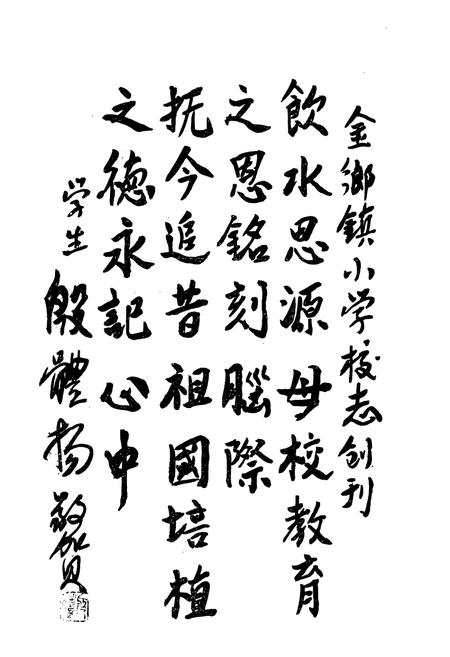 金鄉鎮小学校志创刊
飲水思源母校教育
之恩銘刻腦際
抚今追昔祖國培植
之德永記心中
学生殷體扬敬贺